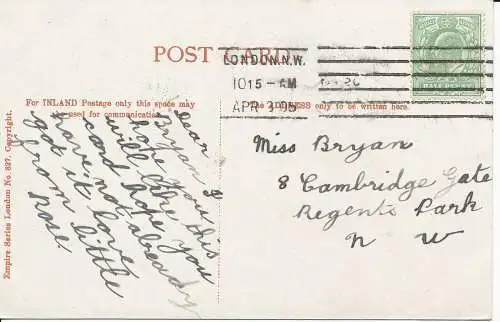 POST CARD
LONDON.N.W.
10 15 - AM
APR 3 05
HALF PENNY
For INLAND Postage only this space may
be used for communication.
The ADDRESS only to be written here.
Empire Series London No. 827. Copyright.
Dear
Bryan I
hope you this
will like
card hope you
have not already
got it love
from little
Rose.
Miss Bryan
8 Cambridge Gate
Regents Park
N W